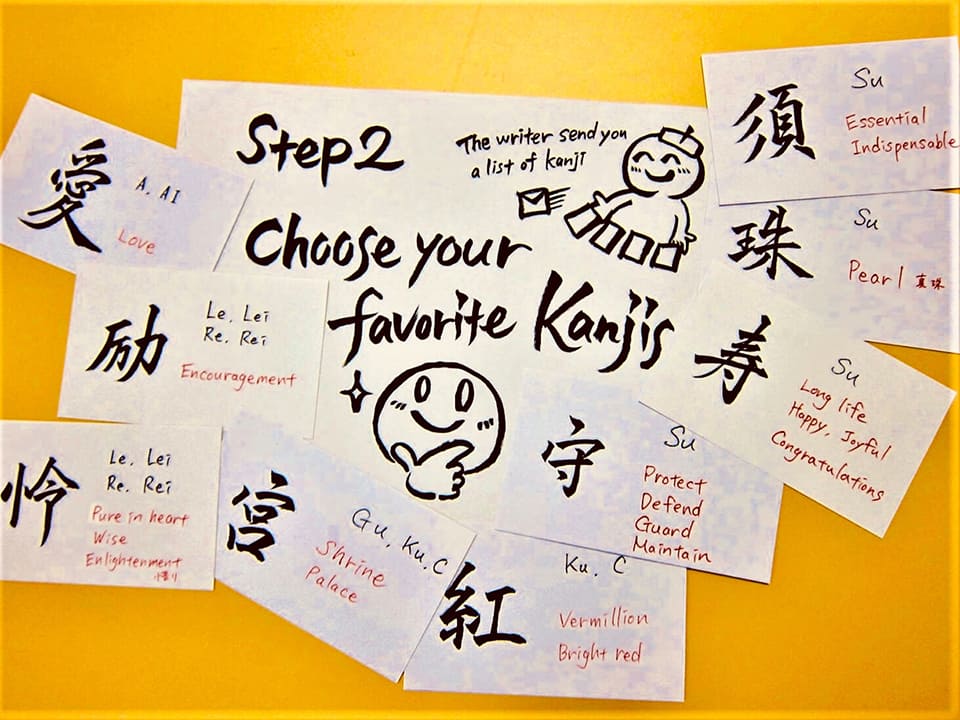 Step2
The writer send you
a list of kanji
Choose your
favorite Kanjis
愛
A, AI
Love
励
Le, Lei
Re, Rei
Encouragement
怜
Le, Lei
Re, Rei
Pure in heart
Wise
Enlightenment
悟り
宮
Gu, Ku, C
Shrine
Palace
紅
Ku, C
Vermillion
Bright red
守
Su
Protect
Defend
Guard
Maintain
寿
Su
Long life
Happy, Joyful
Congratulations
珠
Su
Pearl 真珠
須
Su
Essential
Indispensable